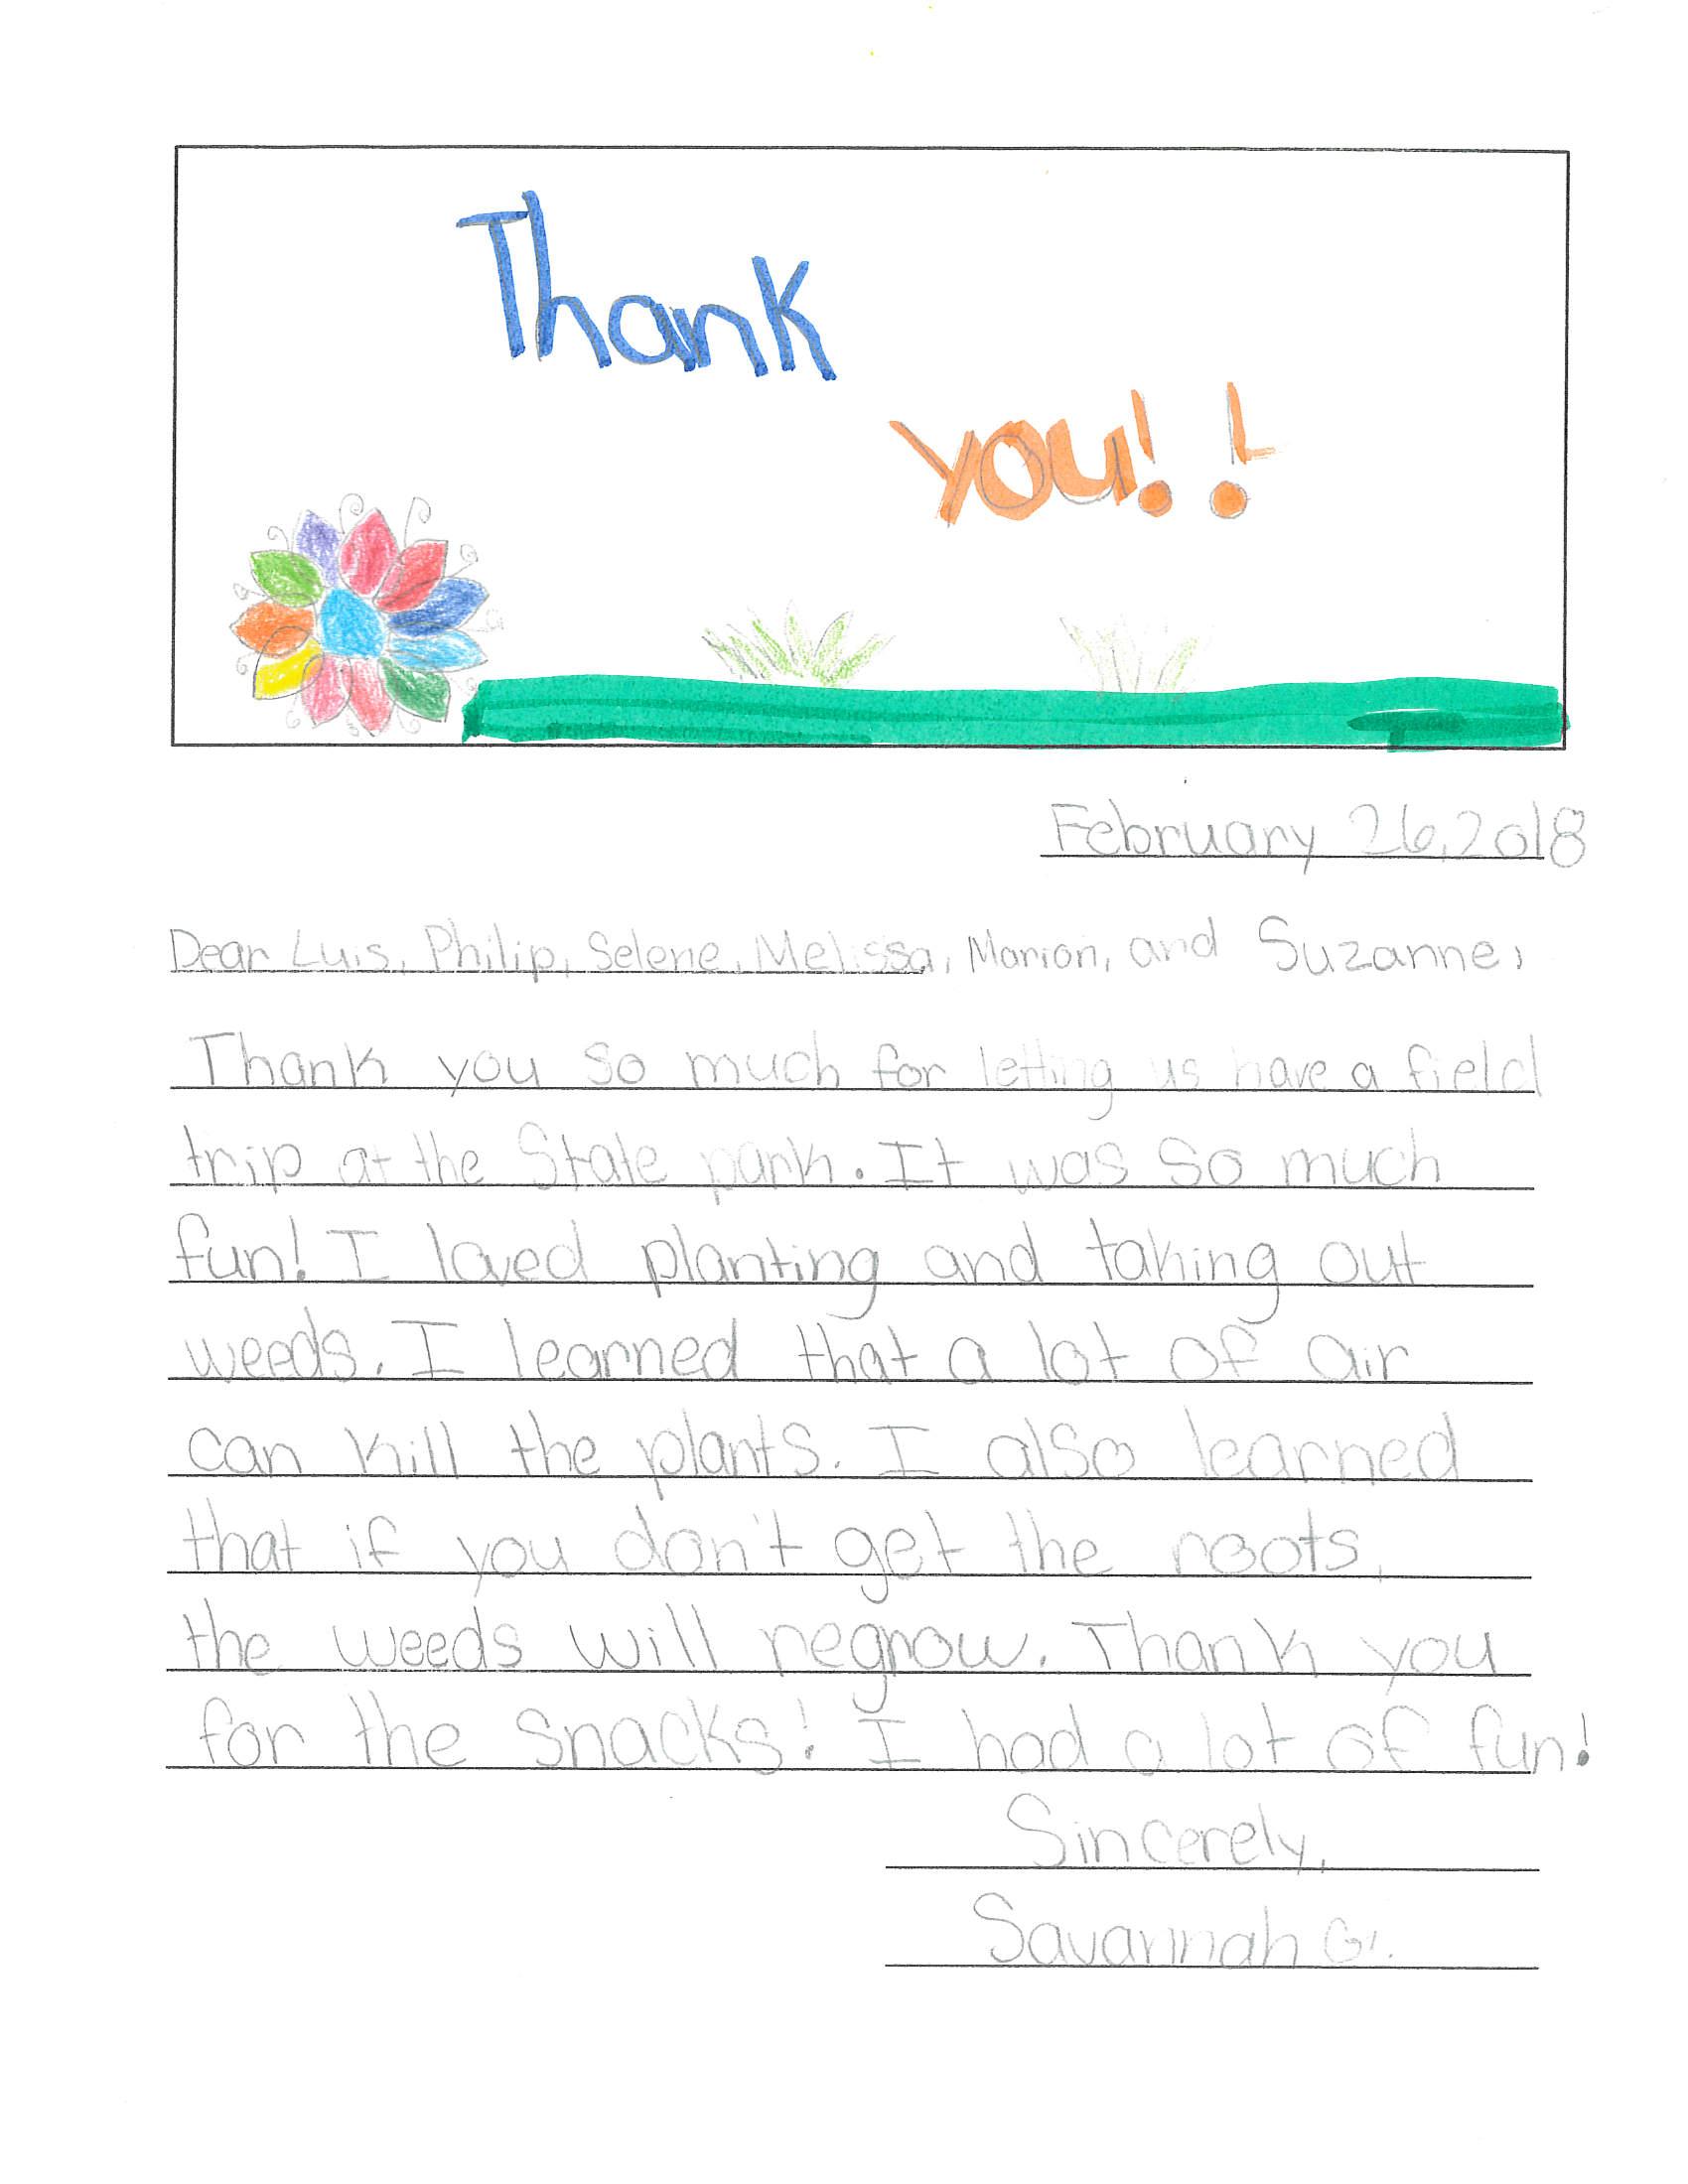 Thank
you!!
February 26, 2018
Dear Luis, Philip, Selene, Melissa, Marion, and Suzanne,
Thank you so much for letting us have a field
trip at the State park. It was so much
fun! I loved planting and taking out
weeds. I learned that a lot of air
can kill the plants. I also learned
that if you don't get the roots,
the weeds will regrow. Thank you
for the snacks! I had a lot of fun!
Sincerely,
Savannah G.